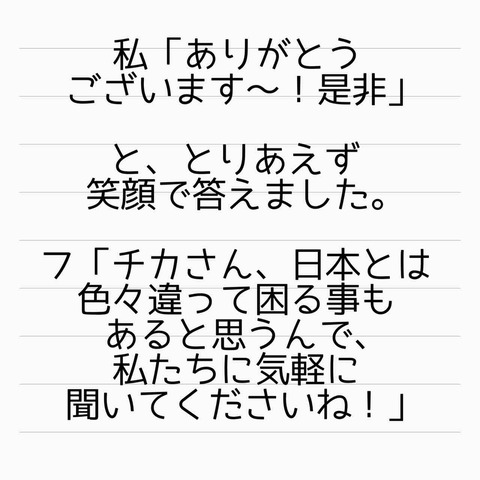 私「ありがとう
ございます〜！是非」
と、とりあえず
笑顔で答えました。
フ「チカさん、日本とは
色々違って困る事も
あると思うんで、
私たちに気軽に
聞いてくださいね！」